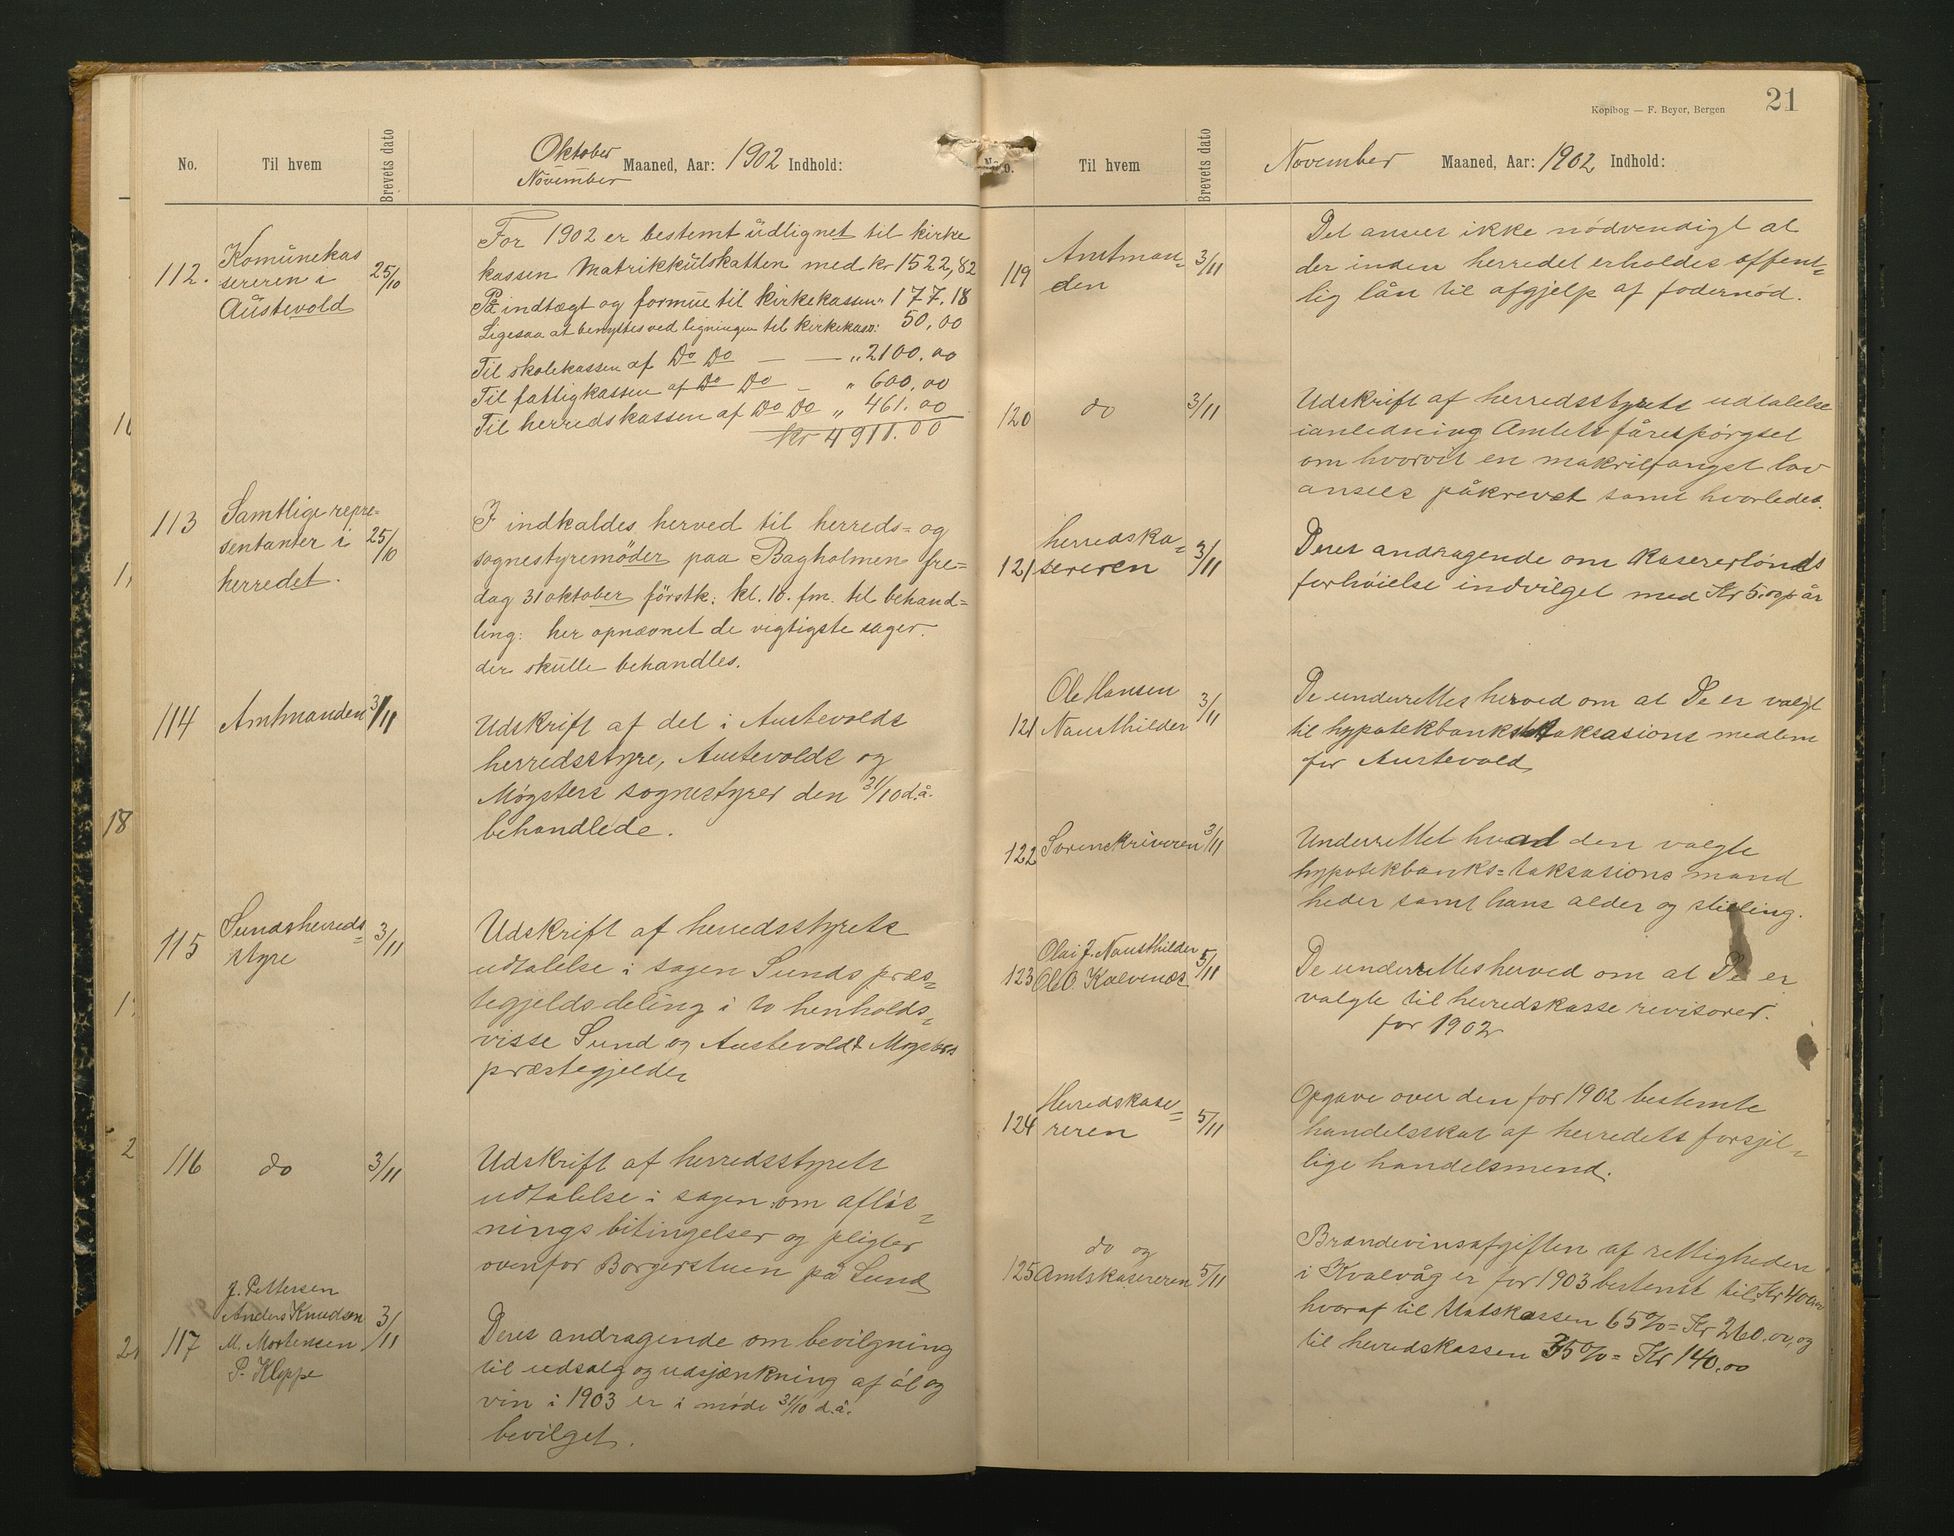 Kopibog — F. Beyer, Bergen
21
No.
Til hvem
Brevets dato
Oktober
November
Maaned, Aar: 1902 Indhold:
112.
Komunekas
sereren i
Austevold
25/10
For 1902 er bestemt udlignet til kirke
kassen Matrikkulskatten med kr 1522,82
Pa indtægt og formue til kirkekassen " 177.18
Ligesaa at benyttes ved ligningen til kirkekass: 50.00
Til skolekassen af Do Do — — " 2100.00
Til fattigkassen af Do Do — " 600.00
Til herredskassen af Do Do " 461.00
Kr 4911.00
113
Samtlige repre-
sentanter i
herredet.
25/10
I indkaldes herved til herreds= og
sognestyremöder paa Bagholmen fre=
dag 31 oktober förstk: kl. 10. fm. til behand=
ling: her opnævnet de vegtigste sager.
der skulle behandles.
114
Amtmanden
3/11
Udskrift af det i Austevolds
herredsstyre, Austevolds og
Møgsters sognestyrer den 31/10 d.å.
behandlede.
115
Sundsherreds=
styre
3/11
Udskrift af herredsstyrets
udtalelse i sagen Sunds præs=
tegjelds deling i to henholds=
visse Sund og Austevold & Mogsters
præstegjelder
116
do
3/11
Udskrift af herredsstyrets
udtalelse i sagen om afløs=
nings bitingelser og pligter
ovenfor Borgerstuen på Sund
117
J. Pettersen
Anders Knudsen
M. Mortensen
P. Kleppe
3/11
Deres andragende om bevilgning
til udsalg og udsjænkning af øl og
vin i 1903 er i møde 31/10 d.å.
bevilget.
No.
Til hvem
Brevets dato
November Maaned, Aar: 1902 Indhold:
119
Amtman=
den
3/11
Det anses ikke nödvendigt at
der inden herredet erholdes offent=
lig lån til afgjelp af fodernød.
120
do
3/11
Udskrift af herredsstyrets udtalelse
ianledning Amtets fårespörgsel
om hvorvit en makrilfangst lov
ansees påkrevet samt hvorledes.
121
herredska=
sereren
3/11
Deres andragende om kasererlønds
forhöielse indvilget med Kr 5.00 p år
121
Ole Hansen
Nausthilder
3/11
De underettes herved om at De er valgt
til hypotekbanks taksasions medlem
for Austevold
122
Sorenskriveren
3/11
Underrettet hvad den valgte
hypotekbanks=taksasions mand
heder samt hans alder og stilling.
123
Olai J. Nausthilder
Ole O. Kalvenes
5/11
De underrettes herved om at De er
valgte til herredskasse revisorer.
for 1902
124
Herredskase=
reren
5/11
Opgave over den for 1902 bestemte
handelsskat af herredets forsjel=
lige handelsmend.
125
do og
Amtskasereren
5/11
Brændevinsafgiften af rettigheden
i Kvalvåg er for 1903 bestemt til Kr 400.00
hvoraf til Statskassen 65% = Kr 260.00, og
til herredskassen 35% = Kr 140.00